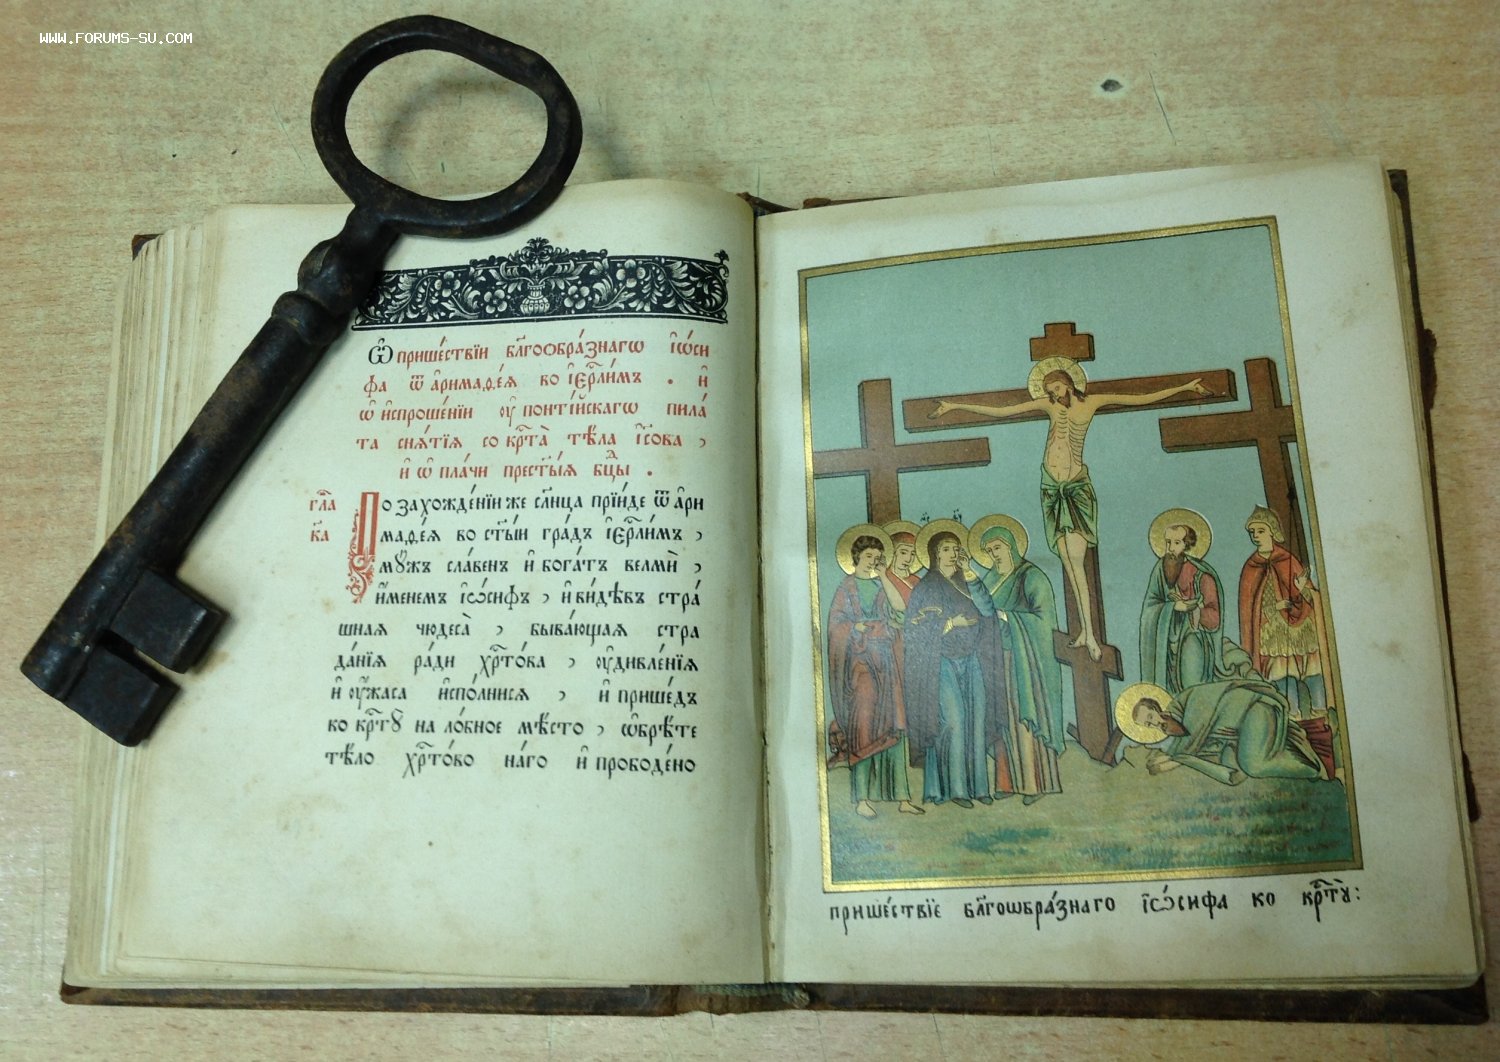 WWW.FORUMS-SU.COM
Ѽ пришéствїи бл҃гоѻбрáзнагѡ і҆ѡ́си
фа ѿ а҆рїмаѳéѧ во і҆ер҃ли́мъ . и҆
ѡ҆ и҆спрошéнїи ᲂу҆ понті́йскагѡ пилá
та снѧ́тїѧ со кр҃тà тѣ́ла і҆с҃ова ,
и҆ ѡ҆ плáчи прест҃ы́ѧ бц҃ы .
гл҃а
к҃а
По захождéнїи же сл҃нца прїи́де ѿ а҆ри
маѳéѧ во ст҃ы́и грáдъ і҆ер҃ли́мъ ,
мꙋ́жъ слáвенъ и҆ богáтъ велмѝ ,
и҆́менемъ і҆ѡ́сифъ , и҆ ви́дѣвъ стрá
шнаѧ чюдесà , бывáющаѧ стра
дáнїѧ рáди хр҃тóва , ᲂу҆дивлéнїѧ
и҆ ᲂу҆́жаса и҆спóлнисѧ , и҆ пришéдъ
ко кр҃тꙋ̀ на лóбное мѣ́сто , ѡ҆брѣ́те
тѣ́ло хр҃тóво нáго и҆ прободéно
пришéствїе бл҃гоѡбрáзнаго і҆ѡ́сифа ко кр҃тꙋ̀: